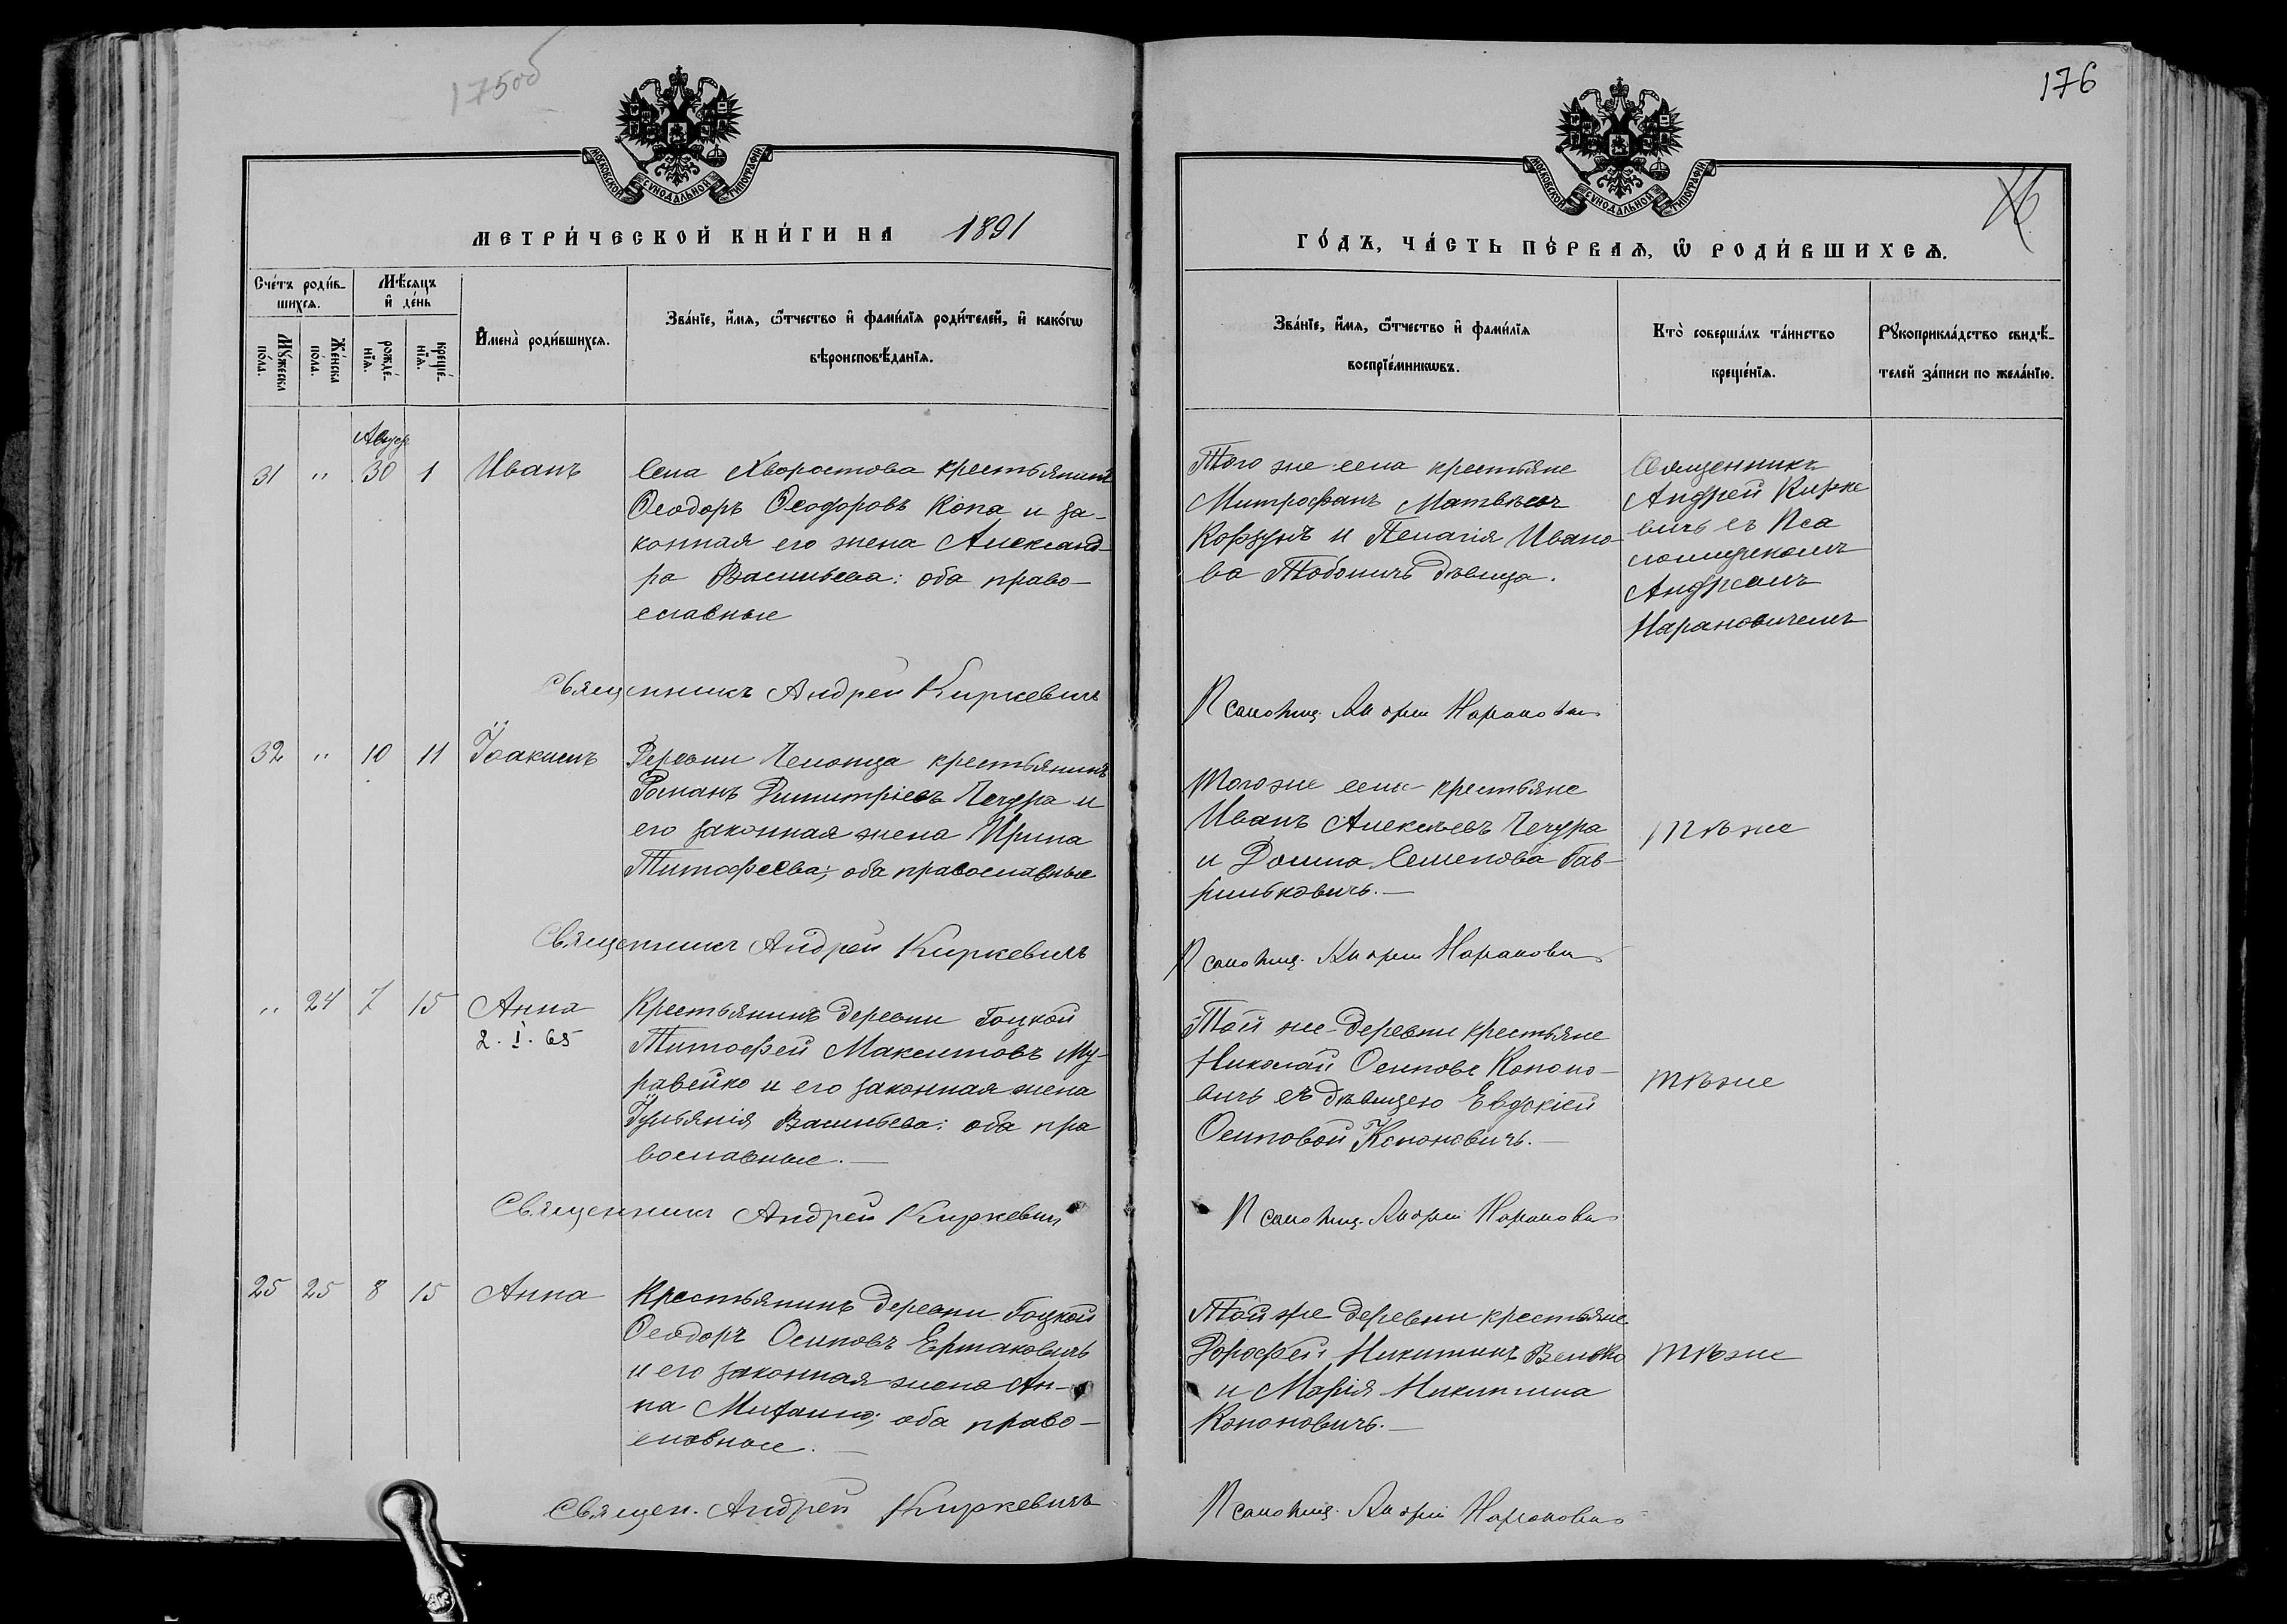 175об
МОСКОВСКОЙ СѴНОДАЛЬНОЙ ТИПОГРАФІИ
МЕТРИ́ЧЕСКОЙ КНИ́ГИ НА 1891
Сче́тъ роди́в-
шихсѧ.
Мѣ́сѧцъ
и҆ де́нь
Мꙋ́жеска
по́ла.
Же́нска
по́ла.
рожде́-
нїѧ.
креще́-
нїѧ.
И҆мена̀ роди́вшихсѧ.
Зва́нїе, и҆́мѧ, ѻ҆́тчество и҆ фами́лїѧ роди́телей, и҆ како́гѡ
вѣроисповѣ́данїѧ.
Август
31 " 30 1 Иванъ
Села Хворостова крестьянинъ
Ѳеодоръ Ѳеодоровъ Копа и за-
конная его жена Александ-
ра Васильева: оба право-
славные
Священникъ Андрей Киркевичъ
32 " 10 11 Іоакимъ
Деревни крестьянинъ
Романъ Димитріевъ Чечура и
его законная жена Ирина
Тимофеева; оба православные
Священникъ Андрей Киркевичъ
" 24 7 15 Анна
2. I. 65
Крестьянинъ деревни Гоцкой
Тимофей Максимовъ Му-
равейко и его законная жена
Іульянія Васильева: оба пра
вославные.—
Священникъ Андрей Киркевич
25 25 8 15 Анна
Крестьянинъ деревни Гоцкой
Ѳеодоръ Осиповъ Ермаковичъ
и его законная жена Ан-
на оба право-
славные.—
Священ. Андрей Киркевичъ
176
МОСКОВСКОЙ СѴНОДАЛЬНОЙ ТИПОГРАФІИ
ГО́ДЪ, ЧА́СТЬ ПЕ́РВАѦ, Ѽ РОДИ́ВШИХСѦ.
Зва́нїе, и҆́мѧ, ѻ҆́тчество и҆ фами́лїѧ
воспрїе́мникѡвъ.
Кто̀ соверша́лъ та́инство
креще́нїѧ.
Рꙋкоприкла́дство свидѣ́-
телей за́писи по жела́нїю.
Того же села крестьяне
Митрофанъ Матвѣевъ
Корзунъ и Пелагія Ивано-
ва Тоболичъ дѣвица.
Священникъ
Андрей Кирке
вичъ съ Пса
ломщикомъ
Андреемъ
Нарановичемъ
Псаломщ. Андрей Нарановичъ
Того же села крестьяне
Иванъ Алексѣевъ Чечура
и Домна Семенова Гав-
рильковичъ.—
тѣ же
Псаломщ. Андрей Нарановичъ
Той же деревни крестьяне
Николай Осиповъ Кононо-
вичъ съ дѣвицею Евдокіей
Осиповой Кононовичъ.—
тѣ же
Псаломщ. Андрей Нарановичъ
Той же деревни крестьяне
Дорофей Никитинъ Велько
и Марія Никитина
Кононовичъ.—
тѣ же
Псаломщ. Андрей Нарановичъ